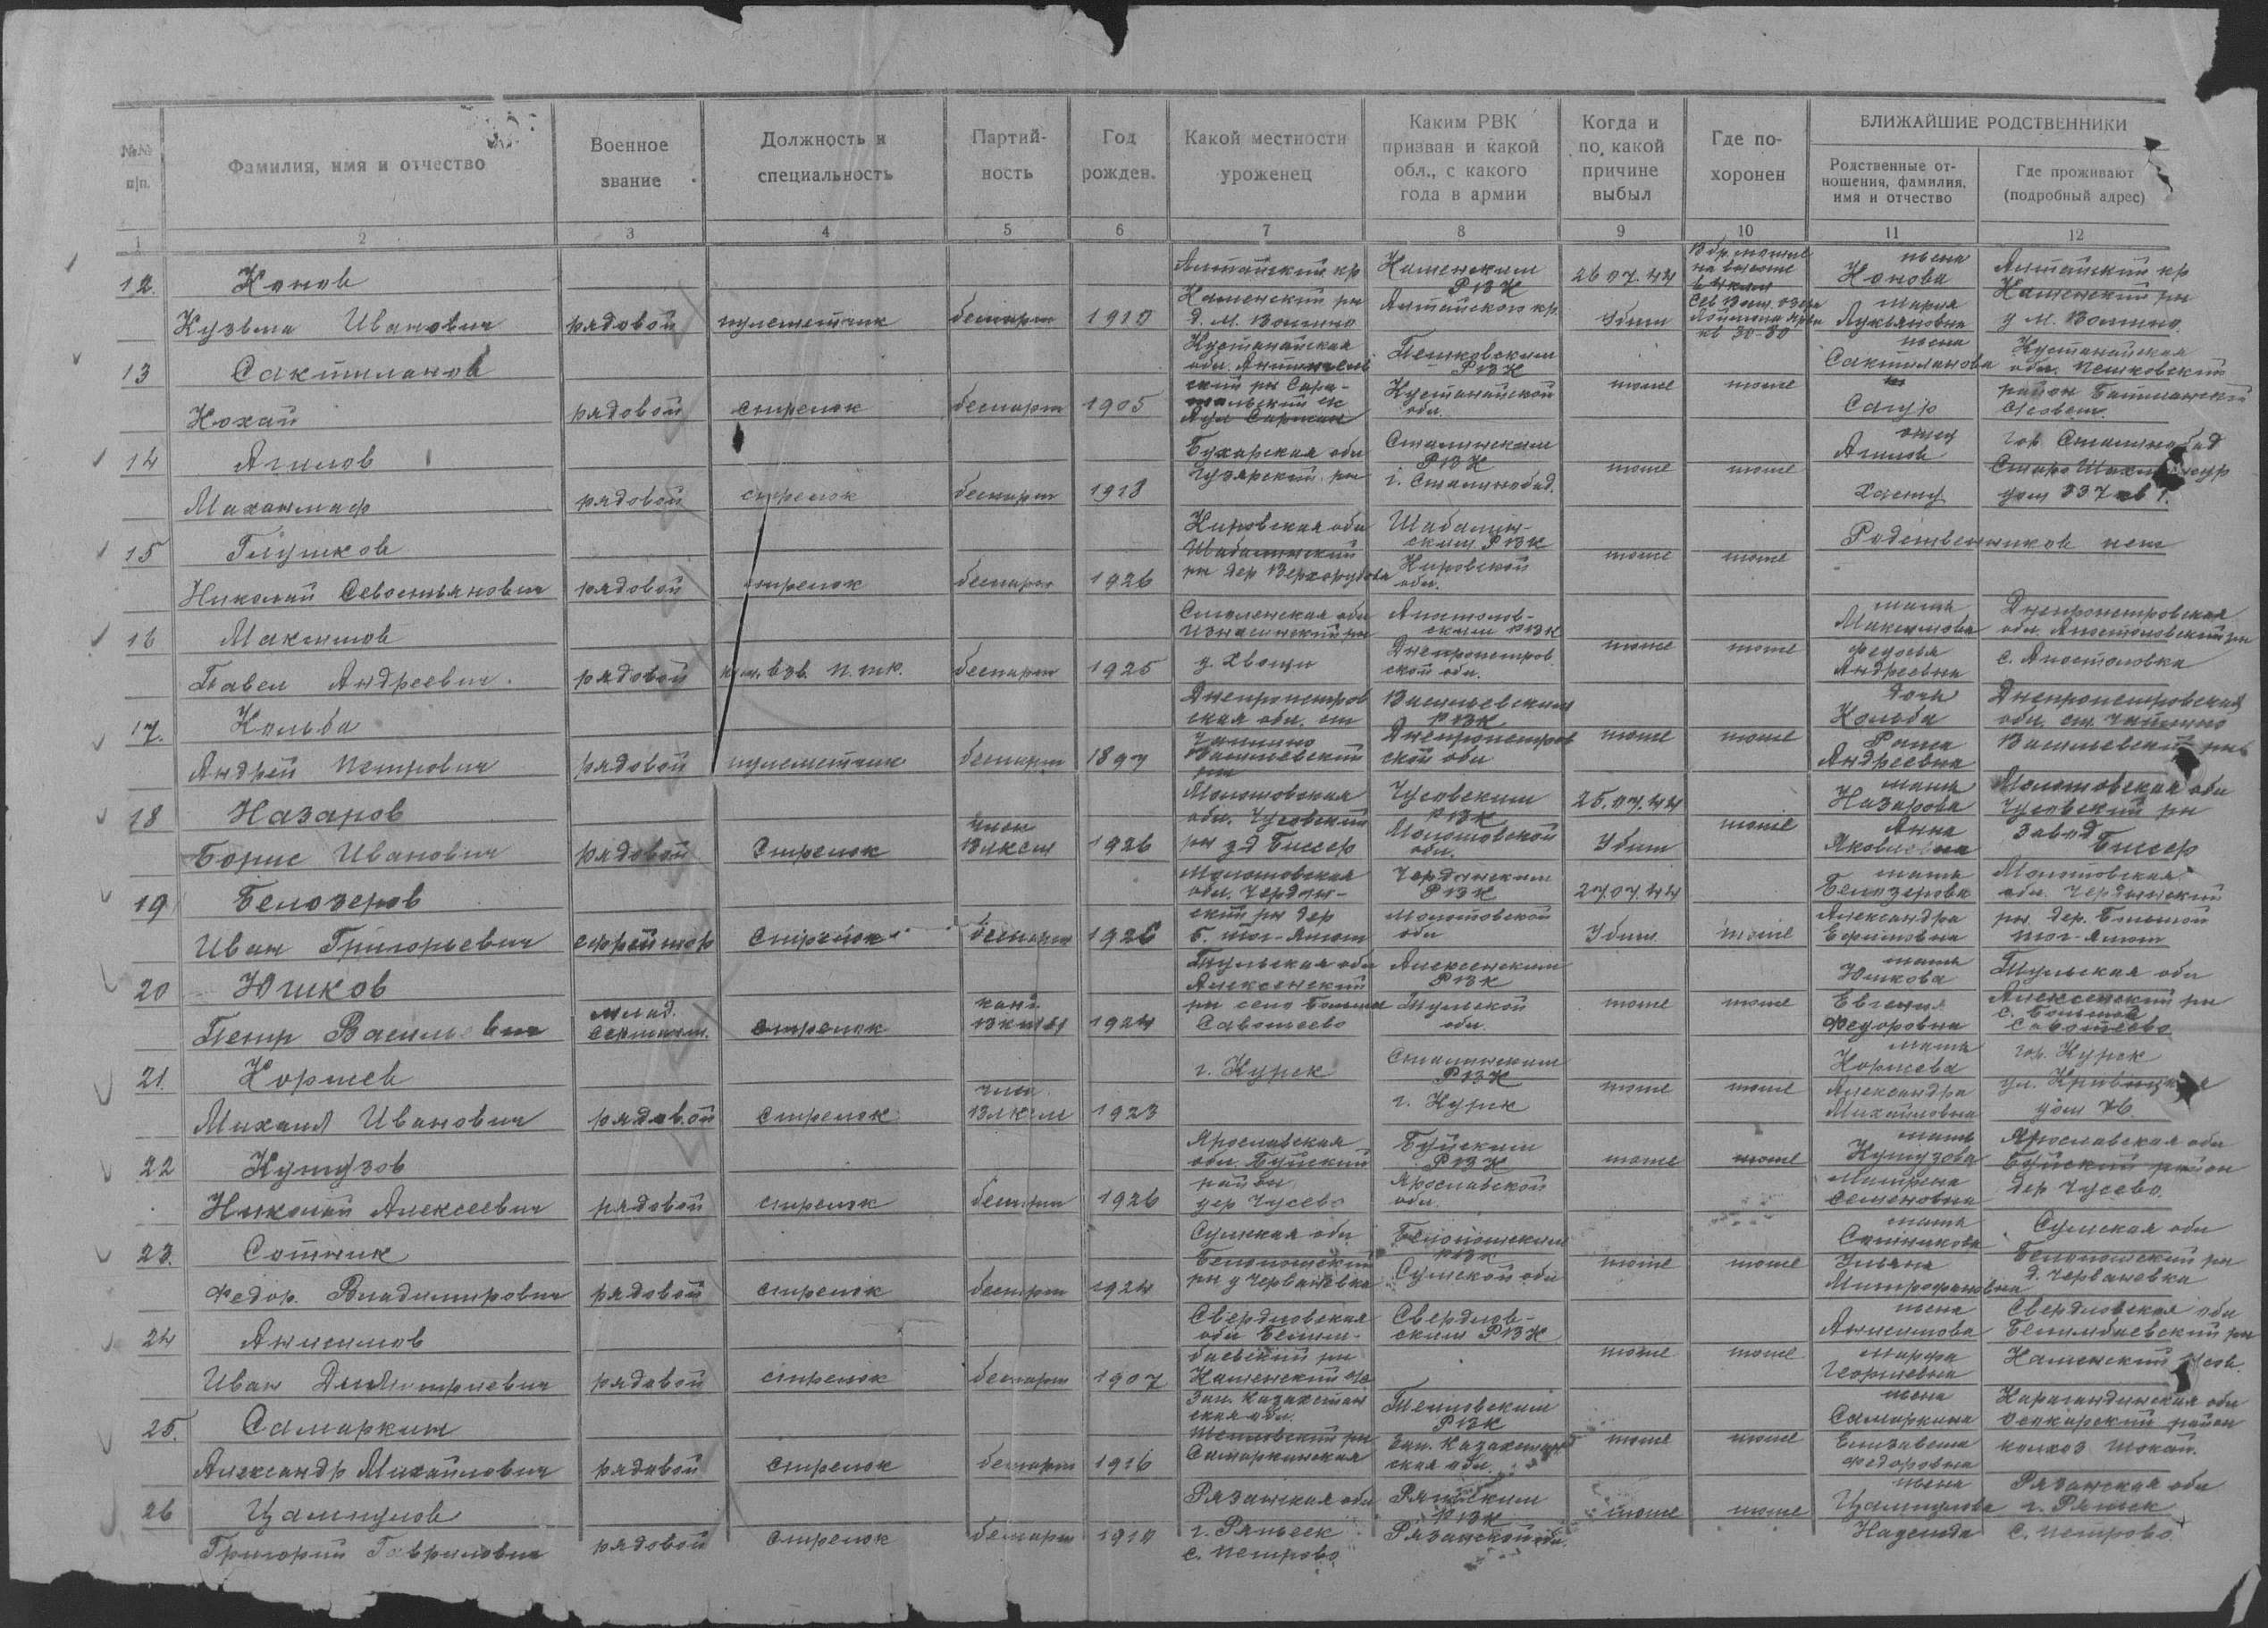 №№ п/п.
Фамилия, имя и отчество
Военное звание
Должность и специальность
Партий-ность
Год рожден.
Какой местности уроженец
Каким РВК призван и какой обл., с какого года в армии
Когда и по какой причине выбыл
Где по-хоронен
БЛИЖАЙШИЕ РОДСТВЕННИКИ
Родственные от-ношения, фамилия, имя и отчество
Где проживают (подробный адрес)
1 2 3 4 5 6 7 8 9 10 11 12
12. Конов
Кузьма Иванович рядовой пулеметчик беспарт 1910
Алтайский кр Каменский рн
Каменским РВК Алтайского кр.
26.07.44 Убит
жена Конова Мария Лукьяновна
Алтайский кр Каменский рн
13 Сактиланов
Кохай рядовой стрелок беспарт 1905
Кустанайская обл.
Пешковским РВК Кустанайской обл.
тоже тоже
жена Сактиланова Сагур
Кустанайская обл. Пешковский район
14 Агилов
рядовой стрелок беспарт 1918
Бухарская обл Гузярский рн
Сталинским РВК г. Сталинобад.
тоже тоже
отец Агилов
гор Сталинобад
дом 337 кв 1.
15 Глушков
Николай Севостьянович рядовой стрелок беспарт 1926
Кировская обл Шабалинский рн дер
Шабалин-ским РВК Кировской обл.
тоже тоже
Родственников нет
16 Максимов
Павел Андреевич. рядовой беспарт 1925
Смоленская обл
д. Хвощи
Апостолов-ским РВК Днепропетров ской обл.
тоже тоже
мать Максимова Федосья Андреевна
Днепропетровская обл. Апостоловский рн с. Апостоловка
17. Кольба
Андрей Петрович рядовой пулеметчик беспарт 1897
Днепропетров ская обл. ст Чаплино Васильевский рн
Васильевским РВК Днепропетров ской обл
тоже тоже
дочь Кольба Раиса Андреевна
Днепропетровская обл. ст. Чаплино Васильевский рн
18 Назаров
Борис Иванович рядовой Стрелок член ВЛКСМ 1926
Молотовская обл. Чусовский рн зд Биссер
Чусовским РВК Молотовской обл.
25.07.44 Убит тоже
мать Назарова Анна Яковлевна
Молотовская обл Чусовский рн завод Биссер
19 Белозеров
Иван Григорьевич ефрейтор Стрелок беспарт 1926
Молотовская обл. Чердын-ский рн дер
Чердынским РВК Молотовской обл
27.07.44 Убит тоже
мать Белозерова Александра Ефимовна
Молотовская обл. Чердынский рн. дер.
20 Юшков
Петр Васильевич млад. сержант. стрелок канд. ВКП(б) 1924
Тульская обл Алексенский рн село Большое Савотеево
Алексенским РВК Тульской обл.
тоже тоже
мать Юшкова Евгения Федоровна
Тульская обл Алексенский рн с. Большое Савотеево
21. Коршев
Михаил Иванович рядовой стрелок член ВЛКСМ 1923
г. Курск
Сталинским РВК г. Курск
тоже тоже
мать Коршева Александра Михайловна
гор. Курск
дом 76
22 Кутузов
Николай Алексеевич рядовой стрелок беспарт 1926
Ярославская обл. Буйский район дер Чусево
Буйским РВК Ярославской обл.
тоже тоже
мать Кутузова Матрена Семеновна
Ярославская обл Буйский район дер Чусево.
23. Сотник
Федор Владимирович рядовой стрелок беспарт 1924
Сумская обл. Белопольский рн д Червановка
Белопольским РВК Сумской обл
тоже тоже
мать Сотникова Ульяна Митрофановна
Сумская обл Белопольский рн д. Червановка
24 Анисимов
Иван Дмитриевич рядовой стрелок беспарт 1907
Свердловская обл Билим-баевский рн Каменский с/с
Свердлов-ским РВК
тоже тоже
жена Анисимова Марфа Георгиевна
Свердловская обл Билимбаевский рн Каменский с/сов.
25. Самаркин
Александр Михайлович рядовой стрелок беспарт 1916
Зап. Казахстан ская обл. Тепловский рн Самаркинская
Тепловским РВК Зап. Казахстан ская обл
тоже тоже
жена Самаркина Елизавета Федоровна
Карагандинская обл район колхоз Токай.
26 Цамцулов
Григорий Гаврилович рядовой стрелок беспарт 1910
Рязанская обл г. Ряжск с. Петрово
Ряжским РВК Рязанской обл.
тоже тоже
жена Цамцулова Надежда
Рязанская обл г. Ряжск с. Петрово